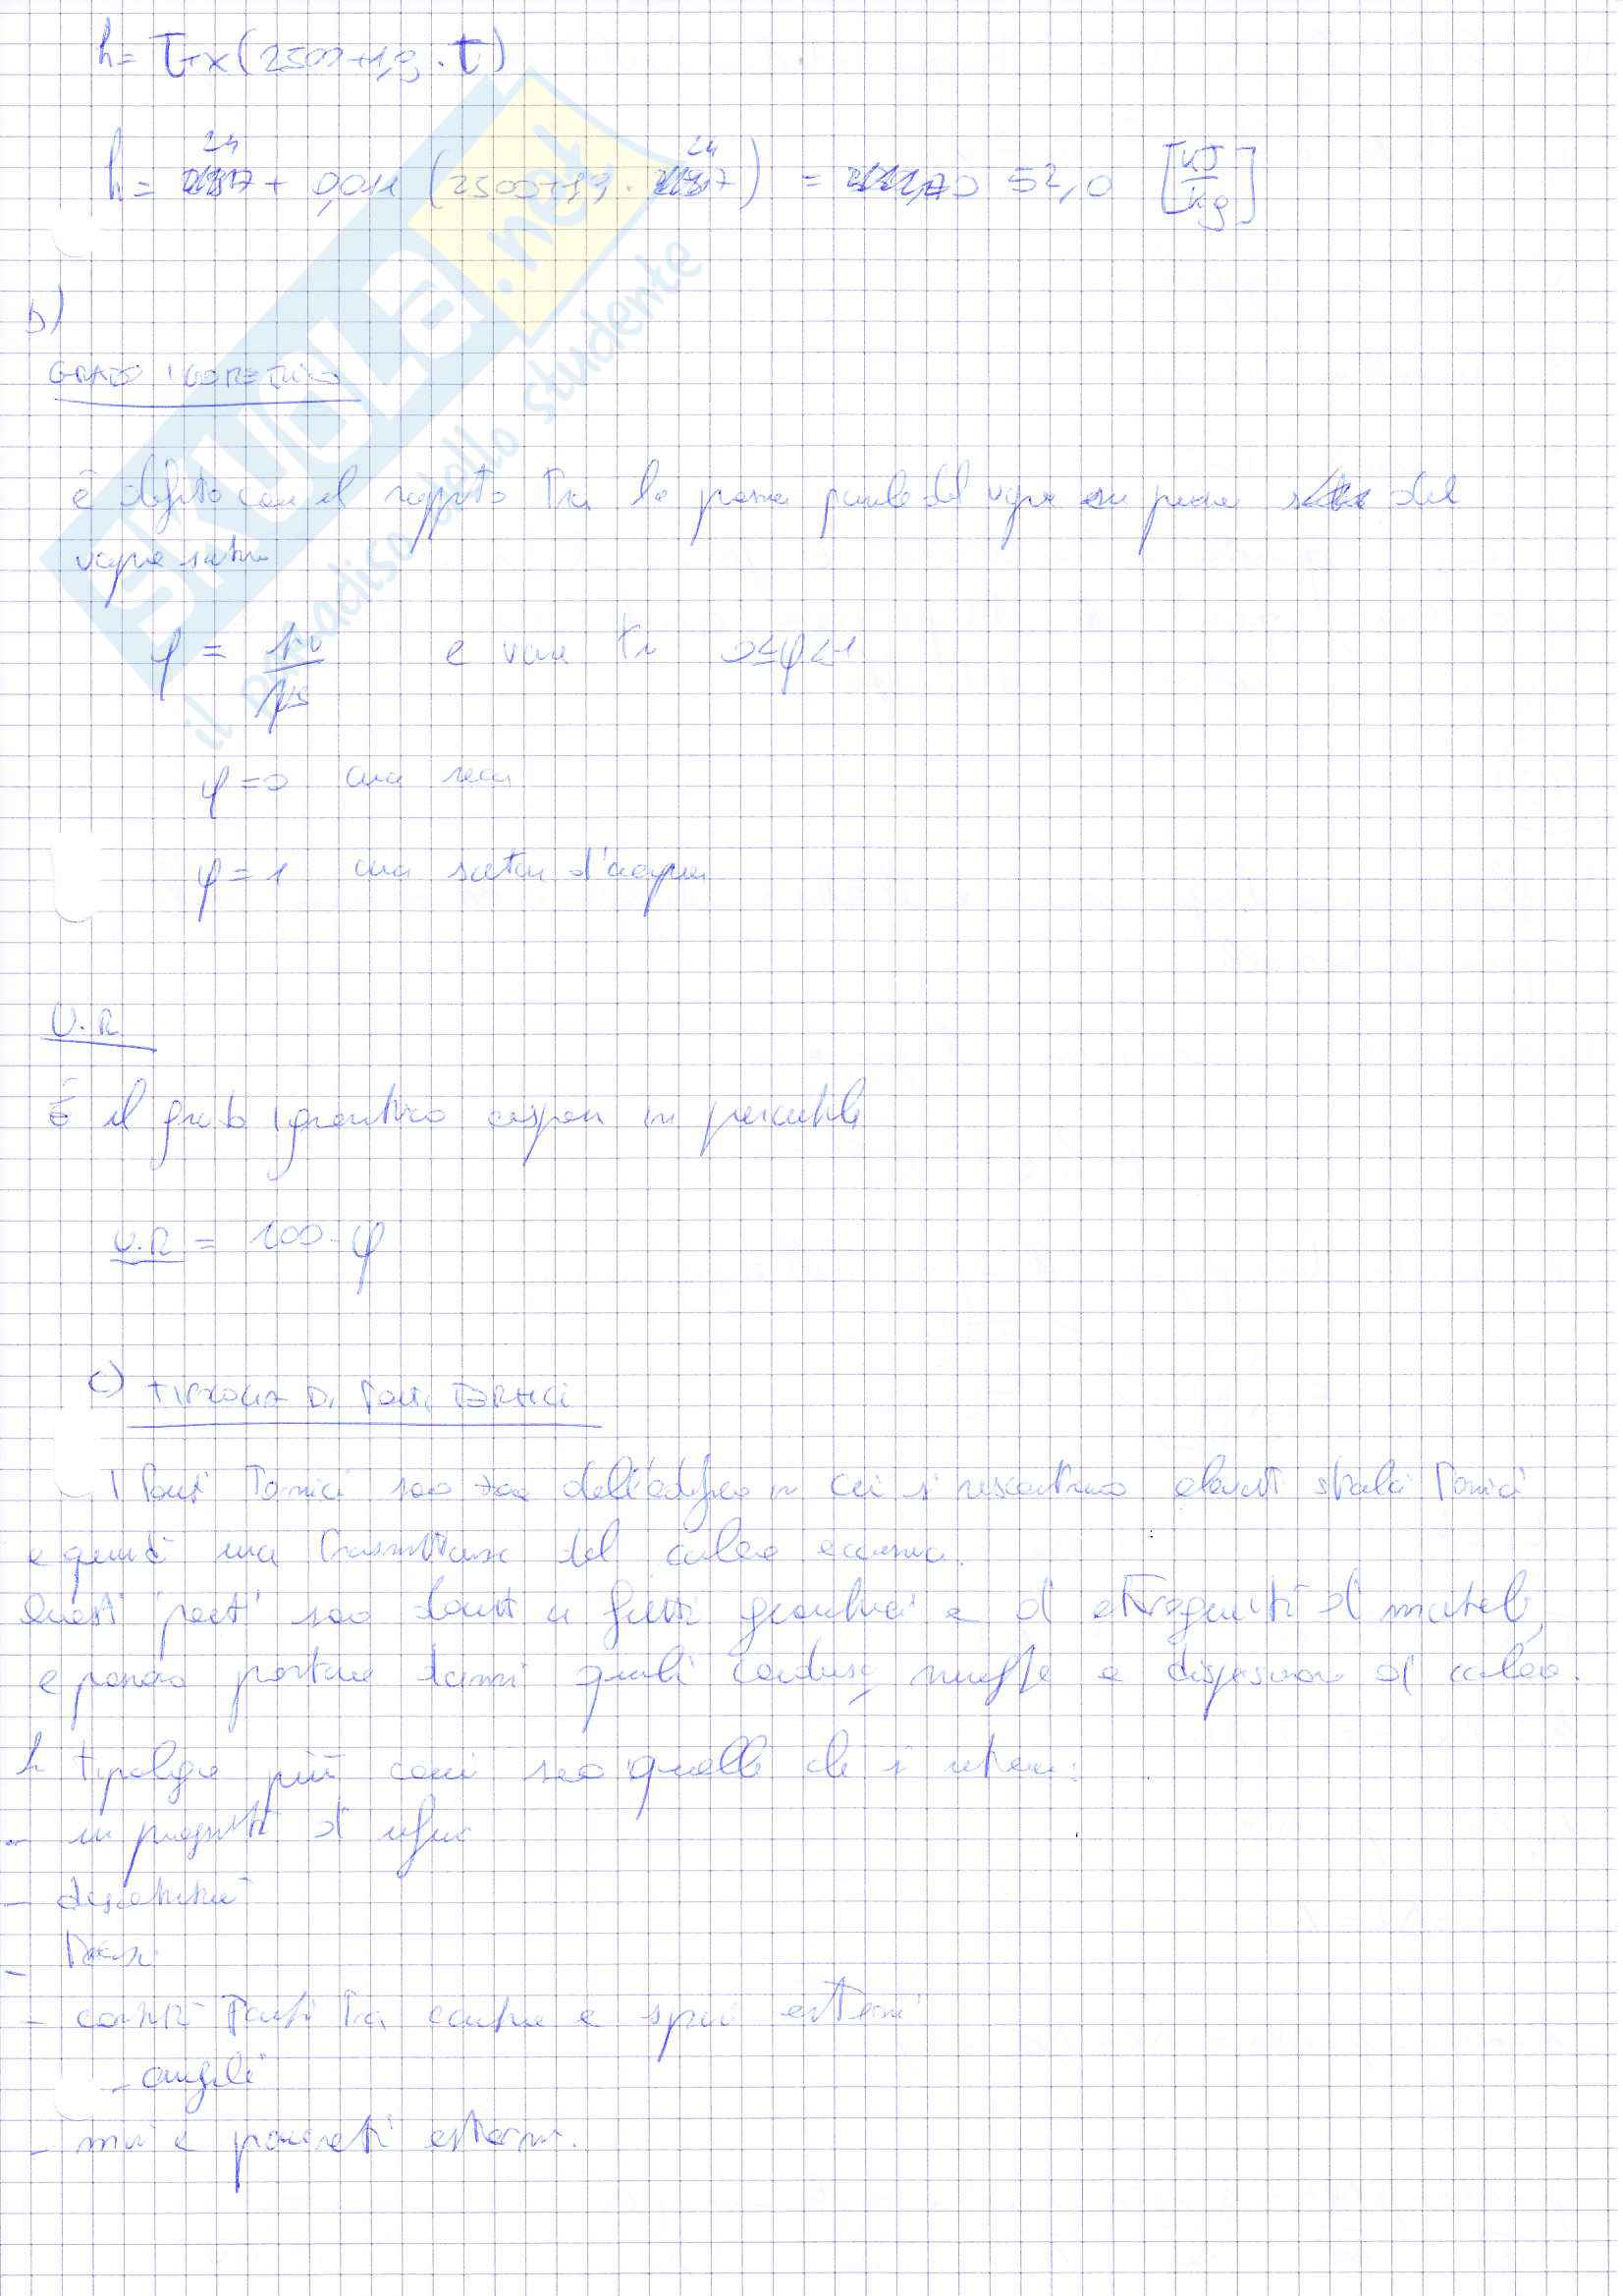 h = t + x (2500 + 1,9 · t)
24 24
h = + 0,011 (2500 + 1,9 · ) = 52,0 [kJ/kg]
b)
GRADO IGROMETRICO
è definito come il rapporto tra la pressione parziale del vapore su pressione del
vapore saturo
φ = pv/ps e varia tra 0≤φ≤1
φ=0 aria secca
φ=1 aria satura d'acqua
U.R
È il grado igrometrico espresso in percentuale
U.R = 100 · φ
c) TIPOLOGIA DI PONTI TERMICI
I Ponti Termici sono zone dell'edificio in cui si riscontrano termici
e quindi una trasmittanza del calore eccessiva.
Questi ponti sono dovuti a geometrici e di eterogeneità di materiali,
e possono portare danni quali condensa, muffe e dispersione di calore.
Le tipologie più comuni sono quelle che si
- in di
-
-
- tra e spazi esterni
- angoli
- muri e pavimenti esterni.
SKUOLA.net
il paradiso dello studente